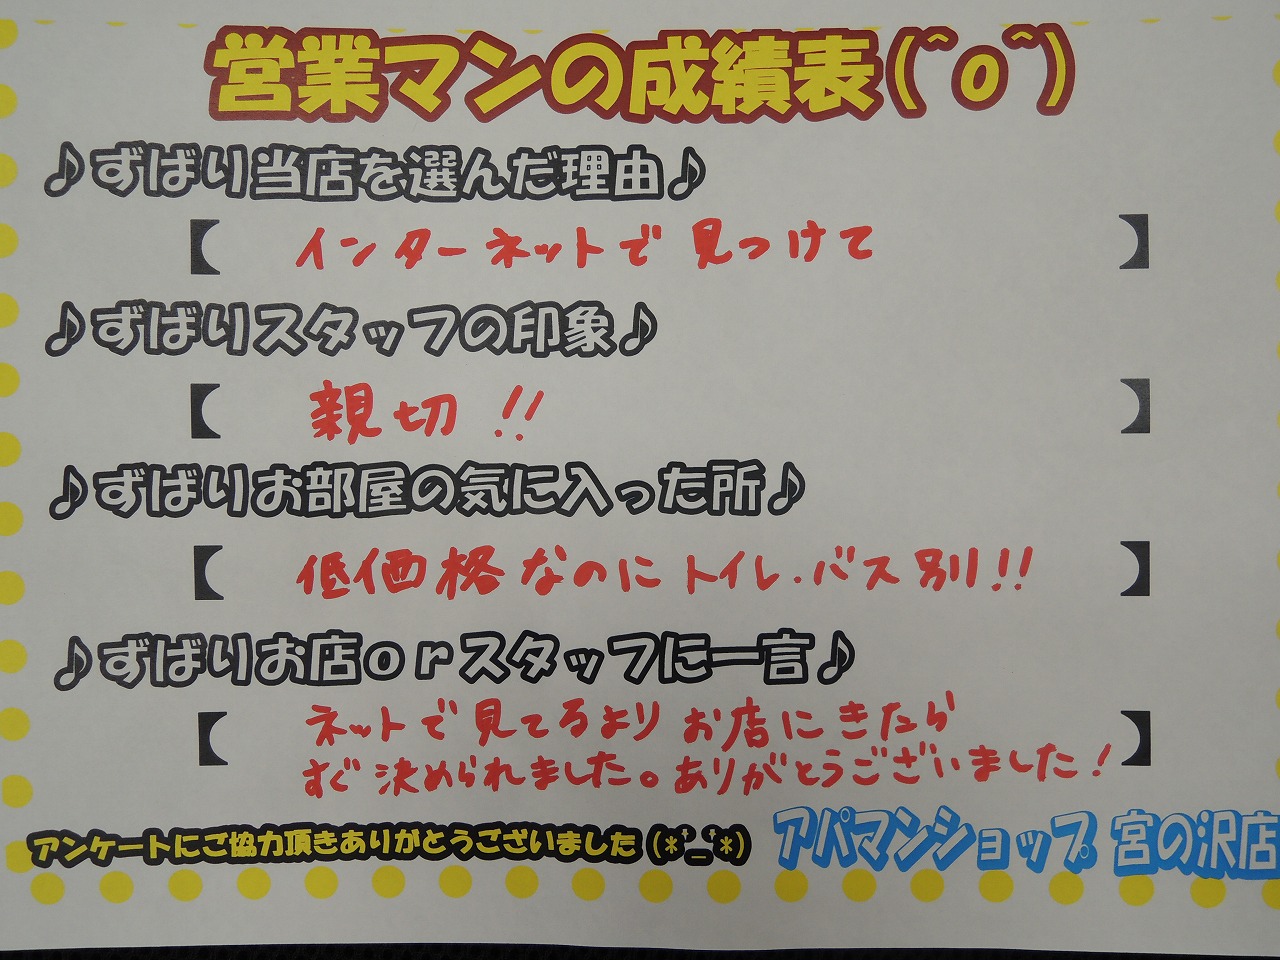 営業マンの成績表(^o^)
♪ずばり当店を選んだ理由♪
【 インターネットで見つけて 】
♪ずばりスタッフの印象♪
【 親切!! 】
♪ずばりお部屋の気に入った所♪
【 低価格なのにトイレ・バス別!! 】
♪ずばりお店orスタッフに一言♪
【 ネットで見てるよりお店にきたら
すぐ決められました。ありがとうございました! 】
アンケートにご協力頂きありがとうございました(*'_'*)
アパマンショップ 宮の沢店